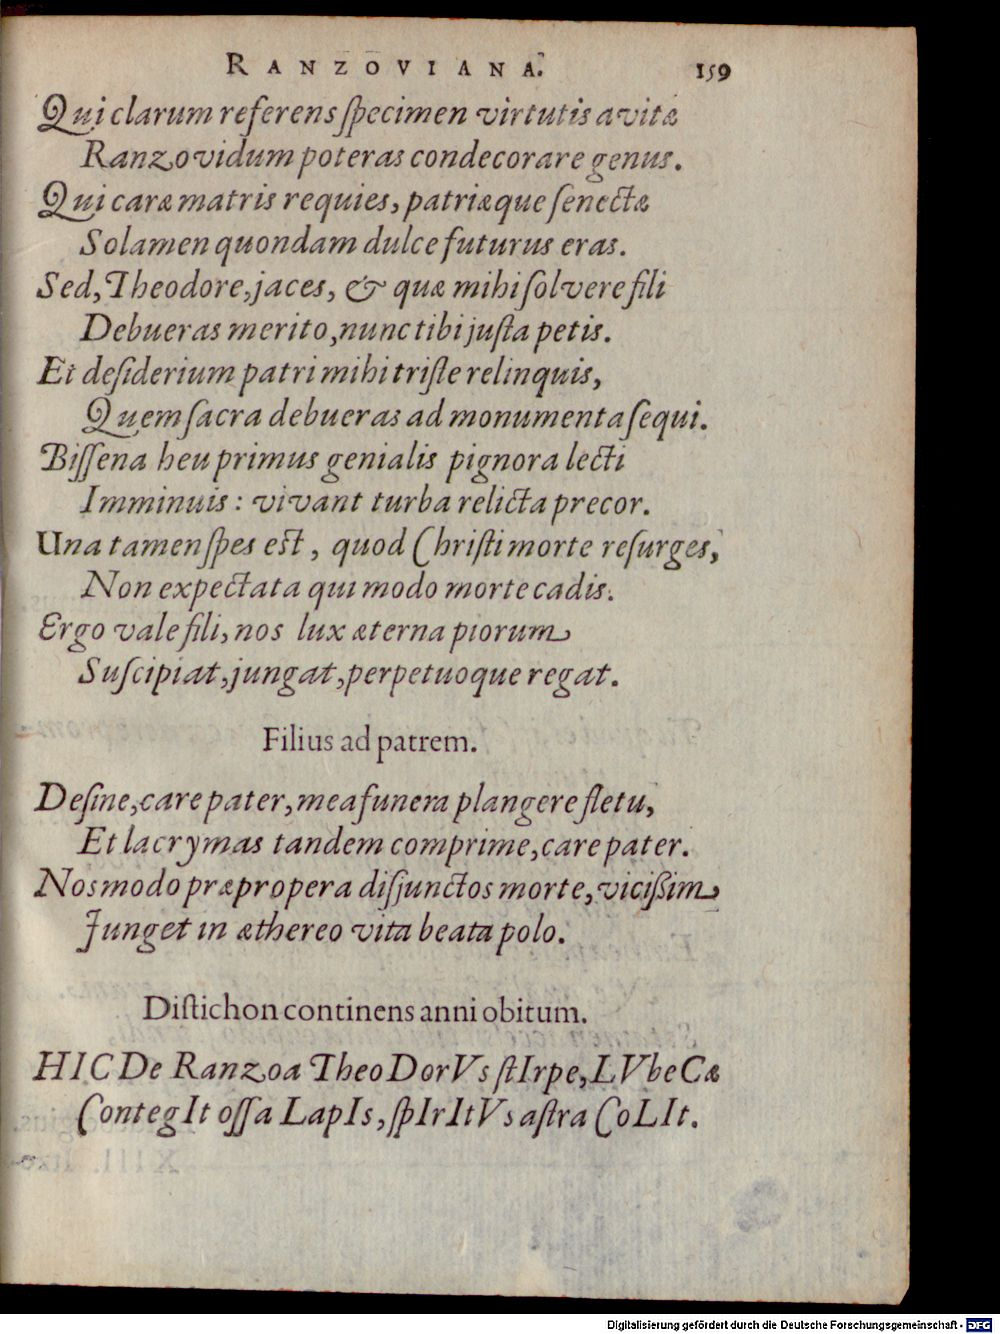 RANZOVIANA. 159
Qui clarum referens ſpecimen virtutis avitæ
Ranzovidum poteras condecorare genus.
Qui caræ matris requies, patriæque ſenectæ
Solamen quondam dulce futurus eras.
Sed, Theodore, jaces, & quæ mihi ſolvere fili
Debueras merito, nunc tibi juſta petis.
Et deſiderium patri mihi triſte relinquis,
Quem ſacra debueras ad monumenta ſequi.
Biſſena heu primus genialis pignora lecti
Imminuis: vivant turba relicta precor.
Una tamen ſpes est, quod Chriſti morte reſurges,
Non expectata qui modo morte cadis.
Ergo vale fili, nos lux æterna piorum
Suſcipiat, jungat, perpetuoque regat.
Filius ad patrem.
Deſine, care pater, mea funera plangere fletu,
Et lacrymas tandem comprime, care pater.
Nos modo præpropera diſjunctos morte, vicißim
Junget in æthereo vita beata polo.
Diſtichon continens anni obitum.
HIC De Ranzoa TheoDorVs ſtIrpe, LVbeCæ
ContegIt oſſa LapIs, ſpIrItVs aſtra CoLIt.
Digitalisierung gefördert durch die Deutsche Forschungsgemeinschaft - DFG